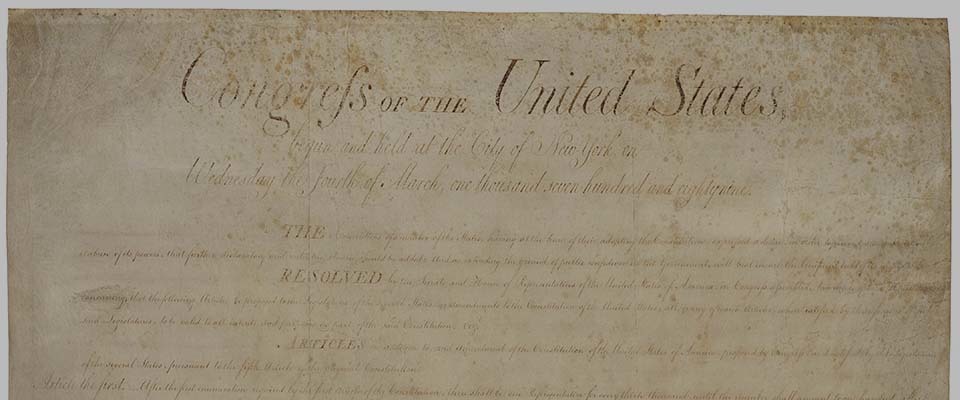 Congreſs OF THE United States,
begun and held at the City of New York, on
Wednesday the fourth of March, one thousand seven hundred and eighty nine.
THE Conventions of a number of the States, having at the time of their adopting the Constitution, expressed a desire, in order to prevent
abuse of its powers, that further declaratory and restrictive clauses should be added: And as extending the ground of public confidence in the Government, will best ensure the beneficent ends of
RESOLVED by the Senate and House of Representatives of the United States of America, in Congress assembled, two thirds of
concurring, that the following Articles be proposed to the Legislatures of the several States, as amendments to the Constitution of the United States, all, or any of which Articles, when ratified by three fourths of
said Legislatures, to be valid to all intents and purposes, as part of the said Constitution; viz.
ARTICLES in addition to, and Amendment of the Constitution of the United States of America, proposed by Congress, and ratified by the Legislatures
of the several States, pursuant to the fifth Article of the Original Constitution.
Article the first. After the first enumeration required by the first Article of the Constitution, there shall be one Representative for every thirty thousand, until the number shall amount to one hundred,